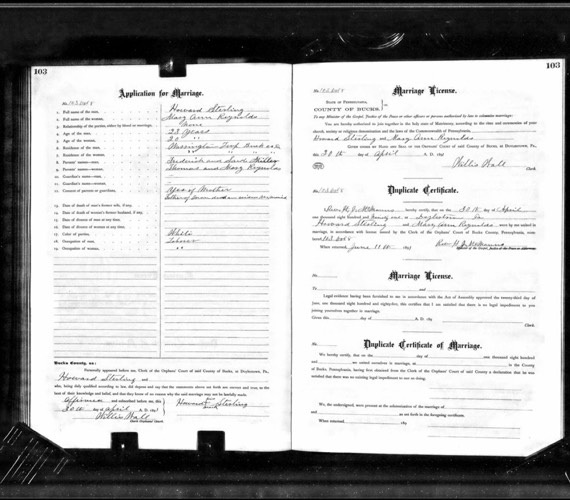 103
Application for Marriage.
1. Full name of the man, Howard Sterling
2. Full name of the woman, Mary Ann Reynolds
3. Relationship of the parties, either by blood or marriage, None
4. Age of the man, 23 Years
5. Age of the woman, 20 "
6. Residence of the man,
7. Residence of the woman,
8. Parents' names—man, Frederick and
9. Parents' names—woman, Thomas and Mary Reynolds
10. Guardian's name—man,
11. Guardian's name—woman,
12. Consent of parents or guardians, Yes of Mother
13. Date of death of man's former wife, if any,
14. Date of death of woman's former husband, if any,
15. Date of divorce of man at any time,
16. Date of divorce of woman at any time,
17. Color of parties, White
18. Occupation of man, Laborer
19. Occupation of woman, "
Bucks County, ss:
Personally appeared before me, Clerk of the Orphans' Court of said County of Bucks, at Doylestown, Pa.,
Howard Sterling and
who, being duly qualified according to law, did depose and say that the statements above set forth are correct and true, to the
best of their knowledge and belief, and that they know of no reason why the said marriage may not be lawfully made.
Affirmed and subscribed before me, this
30th day of April A. D. 189
Howard Sterling
Willis Wall
Clerk Orphans' Court.
103
Marriage License.
State of Pennsylvania,
County of Bucks.
To any Minister of the Gospel, Justice of the Peace or other officer or persons authorized by law to solemnize marriage:
You are hereby authorized to join together in the holy state of Matrimony, according to the rites and ceremonies of your
church, society or religious denomination and the laws of the Commonwealth of Pennsylvania
Howard Sterling and Mary Ann Reynolds
Given under my Hand and Seal of the Orphans' Court of said County of Bucks, at Doylestown, Pa.,
this 30th day of April A. D. 189
Willis Wall
Clerk.
Duplicate Certificate.
hereby certify that on the 30th day of April
one thousand eight hundred and at Pa
Howard Sterling and Mary Ann Reynolds were by me united in
marriage, in accordance with license issued by the Clerk of the Orphans' Court of Bucks County, Pennsylvania,
When returned June 11th 189
Marriage License.
No.
To and
Legal evidence having been furnished to me in accordance with the Act of Assembly approved the twenty-third day of
June, one thousand eight hundred and eighty-five, this certifies that I am satisfied that there is no legal impediment to you
joining yourselves together in marriage.
Given this day of A. D. 189
Clerk.
Duplicate Certificate of Marriage.
We hereby certify, that on the day of one thousand eight hundred
and we united ourselves in marriage, at in the County
of Bucks, Pennsylvania, having first obtained from the Clerk of the Orphans' Court of said County a declaration that he was
satisfied that there was no existing legal impediment to our so doing.
We, the undersigned, were present at the solemnization of the marriage of
and as set forth in the foregoing certificate.
When returned, 189